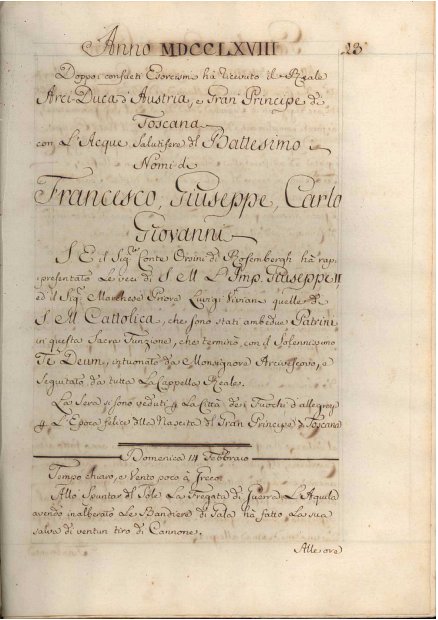 Anno MDCCLXVIII 23
Doppo i consueti Esorcismi hà ricevuto il Reale
Arci-Duca d'Austria, e Gran Principe di
Toscana
con L'Acque Salutifere del Battesimo i
Nomi di
Francesco, Giuseppe, Carlo
Giovanni
S. E. il Sig. Conte Orsini di Rosembergh hà rap-
presentato Le veci di S. M. L'Imp. Giuseppe II
ed il Sig. Marchese Priore Luigi Viviani quelle di
S. M. Cattolica, che sono stati ambedue Patrini
in questa Sacra Funzione, che terminò con il Solennissimo
Te Deum, intuonato da Monsignore Arcivescovo, e
seguitato da tutta La Cappella Reale.
La Sera si sono veduti p La Città dei Fuochi d'allegrez
p L'Epoca felice della Nascita del Gran Principe di Toscana
Domenica 14 Febbraio
Tempo chiaro, e Vento poco à Greco
Allo Spuntar del Sole La Fregata di Guerra L'Aquila
avendo inalberato Le Bandiere di Gala hà fatto La sua
salva di ventun tiro di Cannone.
Alle ore